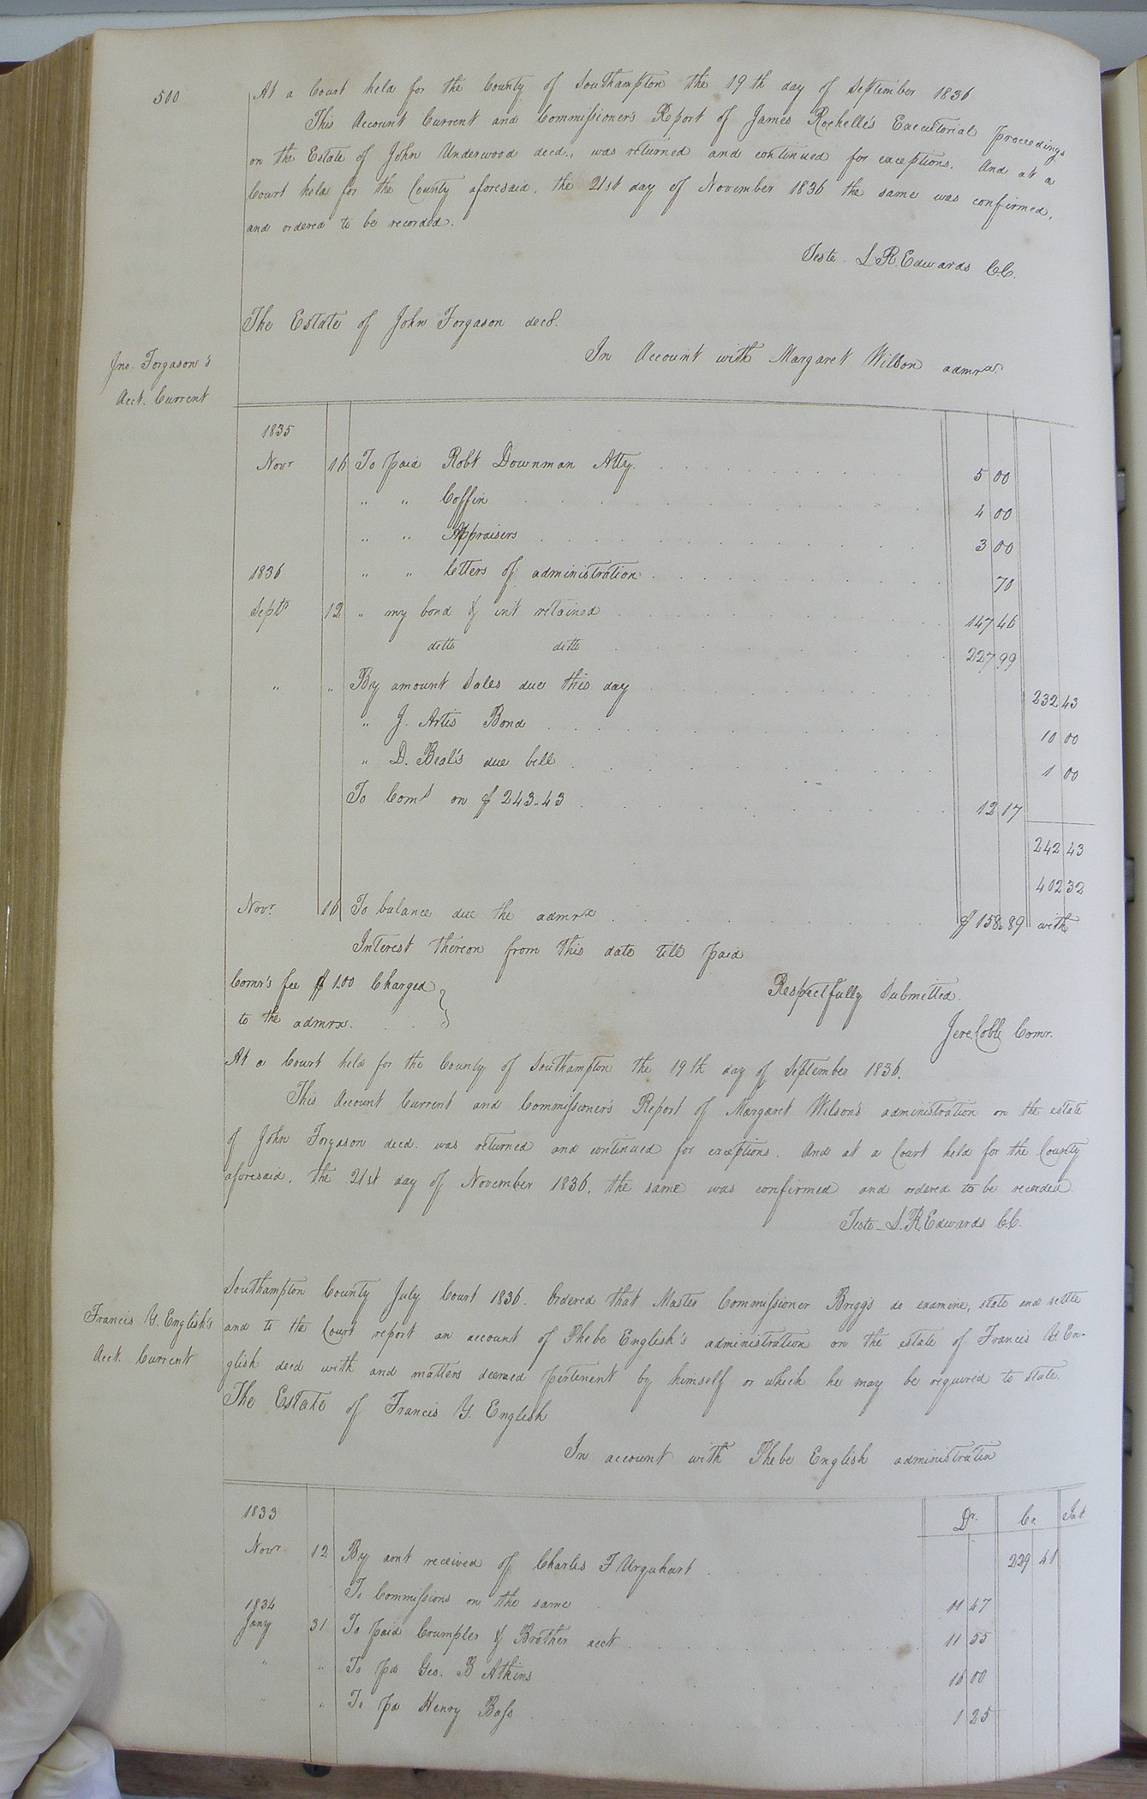 500
At a Court held for the County of Southampton the 19th day of September 1836
This Account Current and Commissioner's Report of James Rochelle's Executorial proceedings
on the Estate of John Underwood decd., was returned and continued for exceptions. And at a
Court held for the County aforesaid, the 21st day of November 1836 the same was confirmed,
and ordered to be recorded.
Teste. L R Edwards C.C.
The Estate of John Forgason decd.
In Account with Margaret Wilson admrx.
Jno. Forgason's
Acct. Current
1835
Novr 16 To paid Robt Downman Atty. 5 00
" " Coffin 4 00
" " Appraisers 3 00
1836 " " Letters of administration 70
Septr 12 " my bond & int retained 147 46
ditto ditto 227 99
" " By amount Sales due this day 232 43
" J. Artis Bond 10 00
" D. Beal's due bill 1 00
To Coms on $ 243.43 12 17
242 43
402 32
Novr 16 To balance due the admrx $ 158.89 with
Interest thereon from this date till paid
Comr's fee $ 1.00 Charged
to the admrx.
Respectfully Submitted.
Jere Cobb Comr.
At a Court held for the County of Southampton the 19th day of September 1836.
This Account Current and Commissioner's Report of Margaret Wilson's administration on the estate
of John Forgason decd. was returned and continued for exceptions. And at a Court held for the County
aforesaid, the 21st day of November 1836, the same was confirmed and ordered to be recorded
Teste_ L.R. Edwards C.C.
Southampton County July Court 1836. Ordered that Master Commissioner Briggs do examine, state and settle
Francis Y. English's
Acct. Current
and to the Court report an account of Phebe English's administration on the estate of Francis Y. En-
glish decd with and matters deemed pertinent by himself or which he may be required to state.
The Estate of Francis Y. English
In account with Phebe English administratin
1833 Dr. Cr Int
Novr 12 By amt received of Charles F Urquhart 229 41
To Commissions on the same 11 47
1834
Jany 31 To paid Crumpler & Brother acct 11 55
" " To pd Geo. B Atkins 16 00
" " To pd Henry Bass 1 25